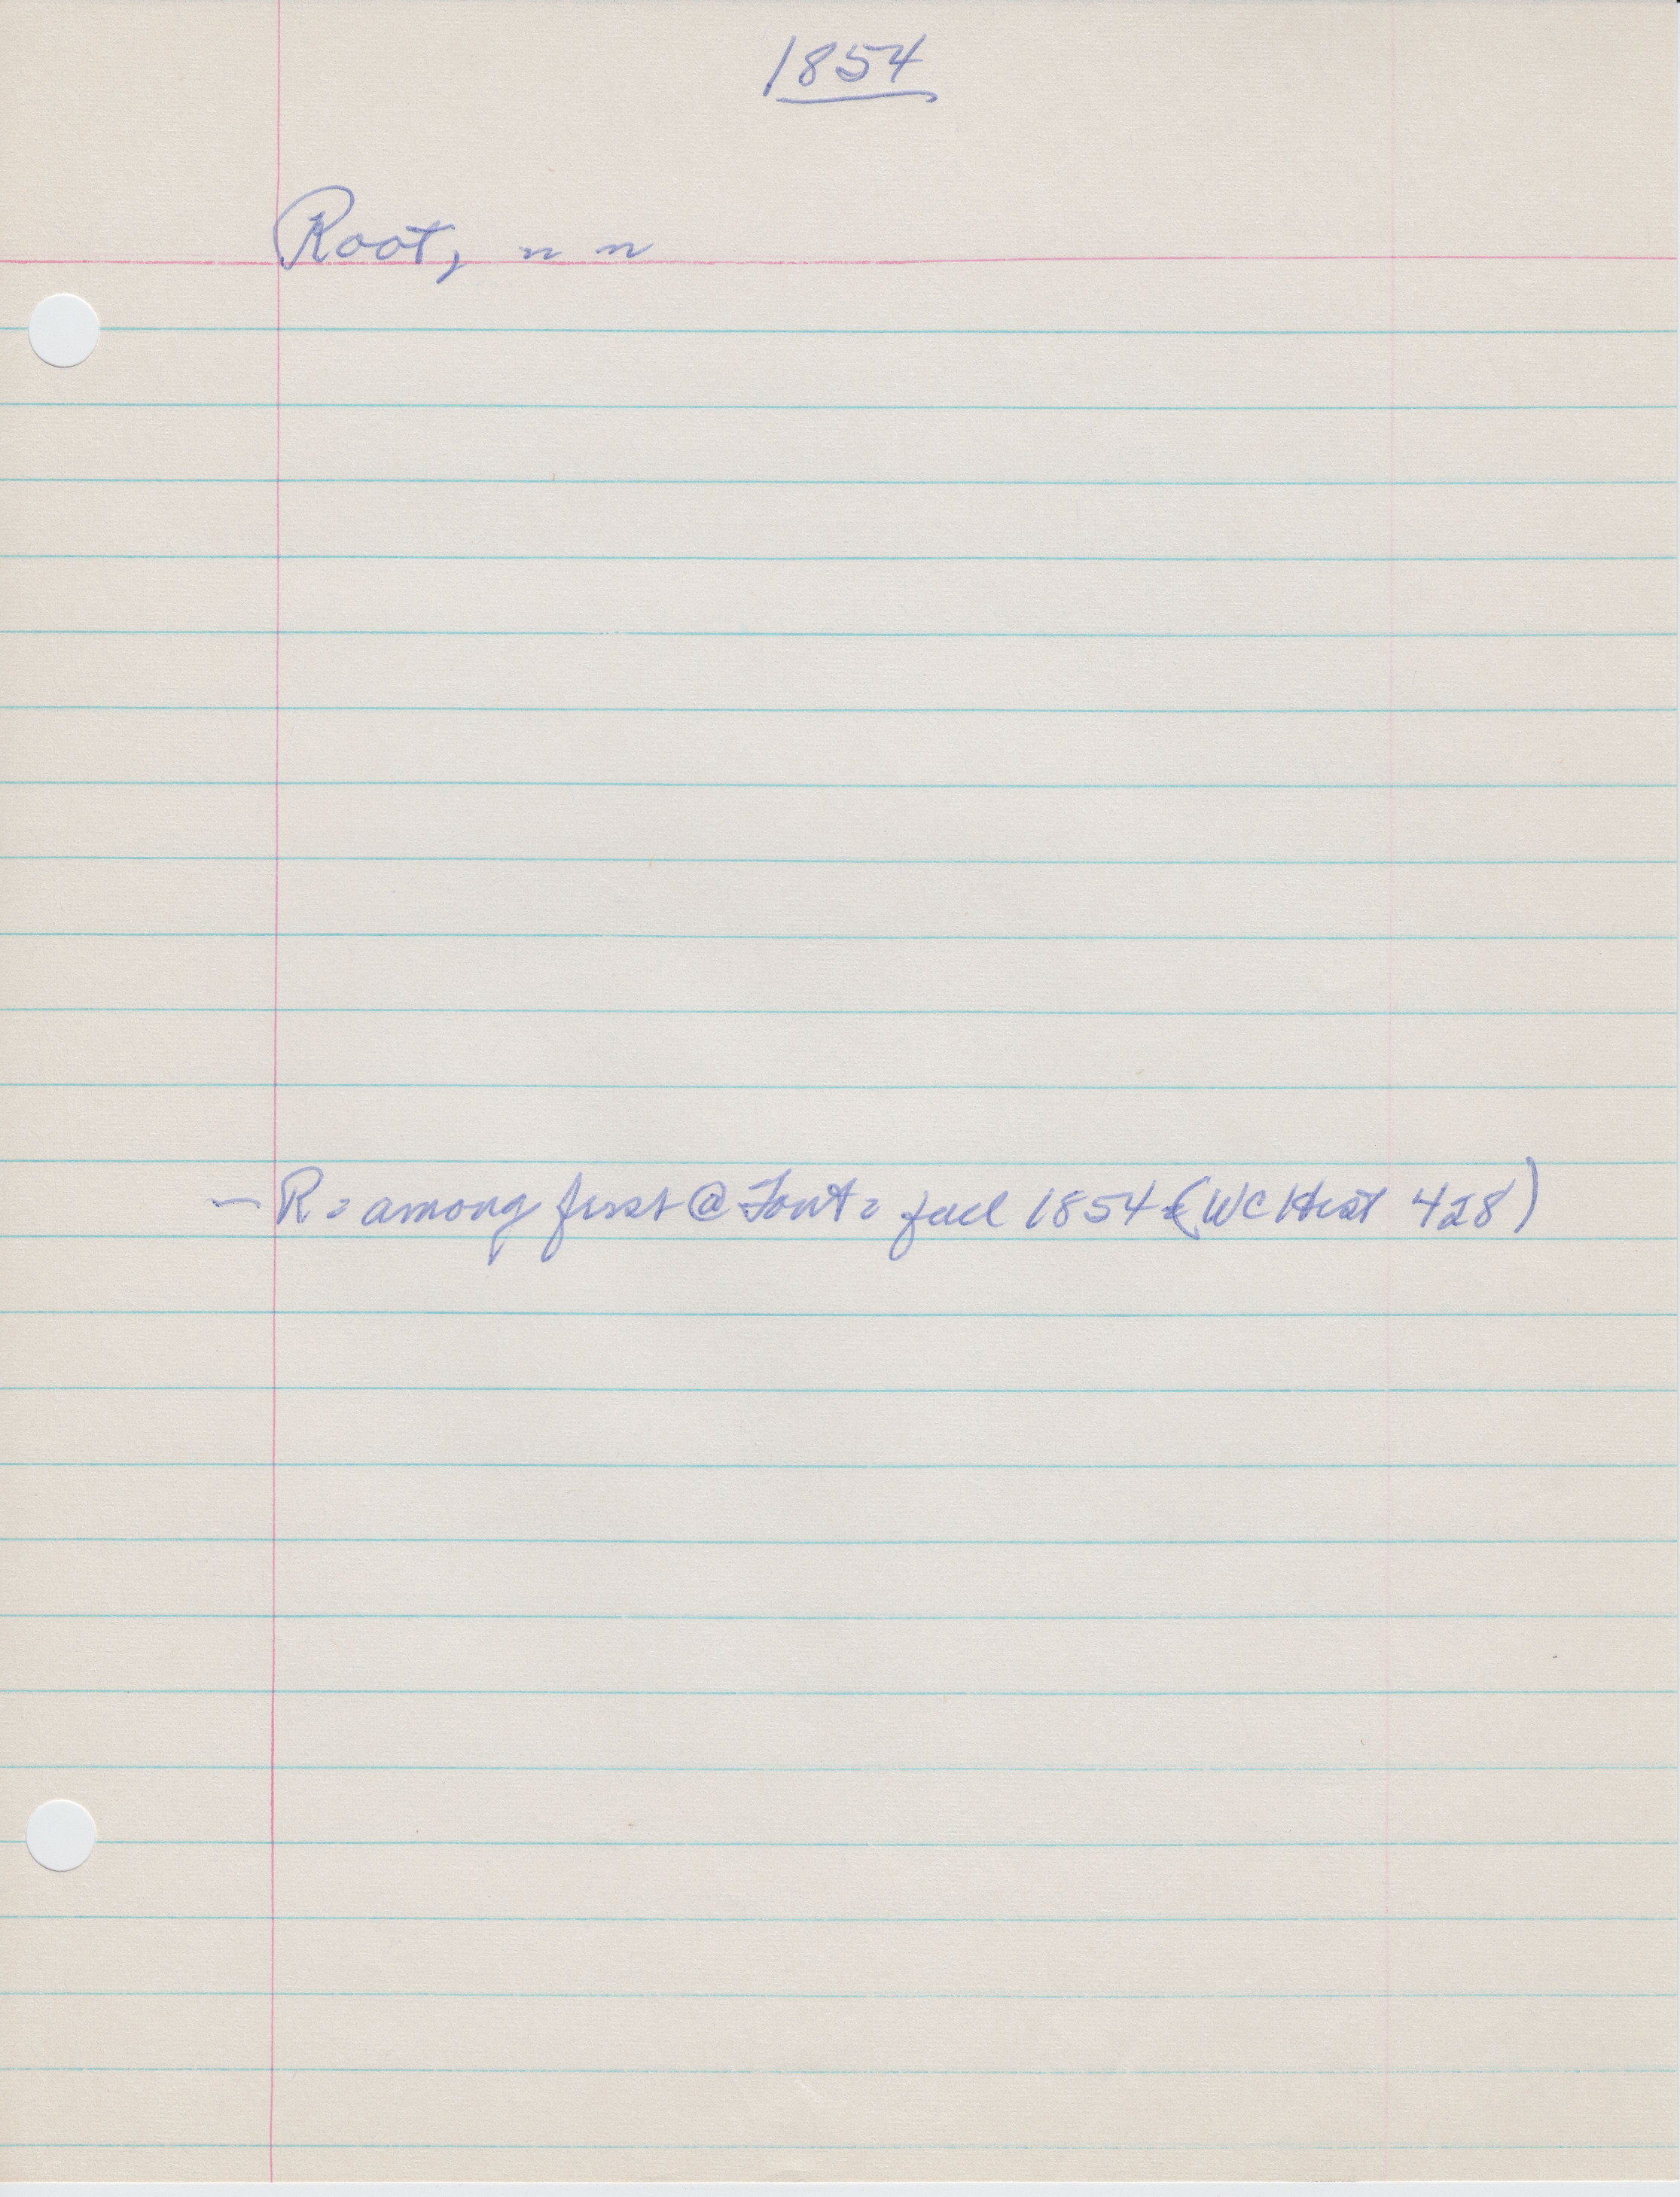 1854
Root, ~ ~
— R = among first @ Font = fall 1854 (WC Hist 428)